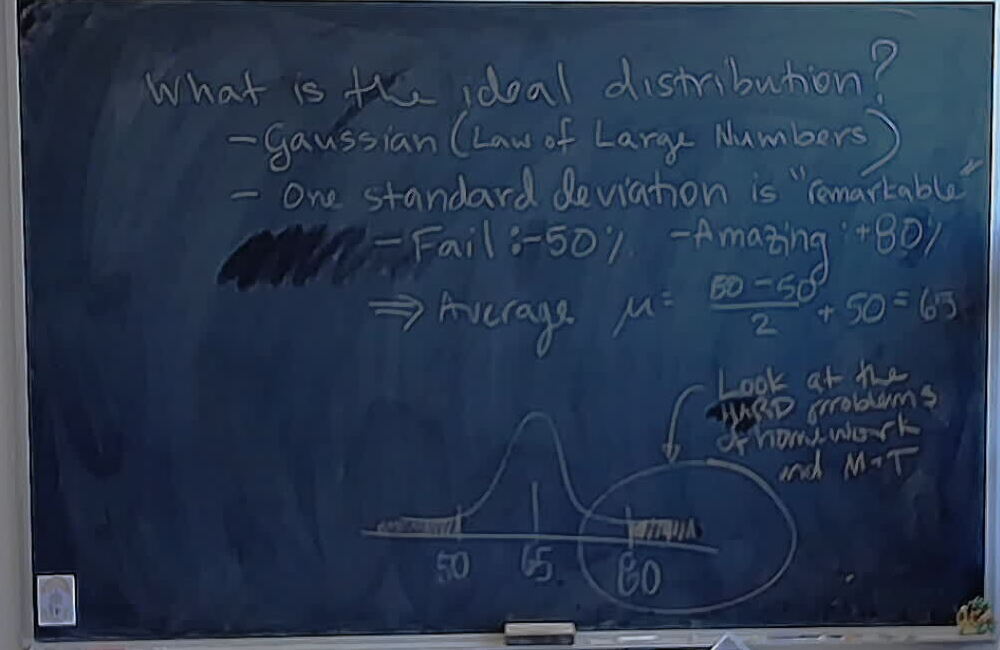 What is the ideal distribution?
- Gaussian (Law of Large Numbers)
- One standard deviation is "remarkable"
- Fail :-50% - Amazing : +80%
⇒ Average μ = \frac{80-50}{2} + 50 = 65
Look at the
HARD problems
of homework
and M-T
50 65 80